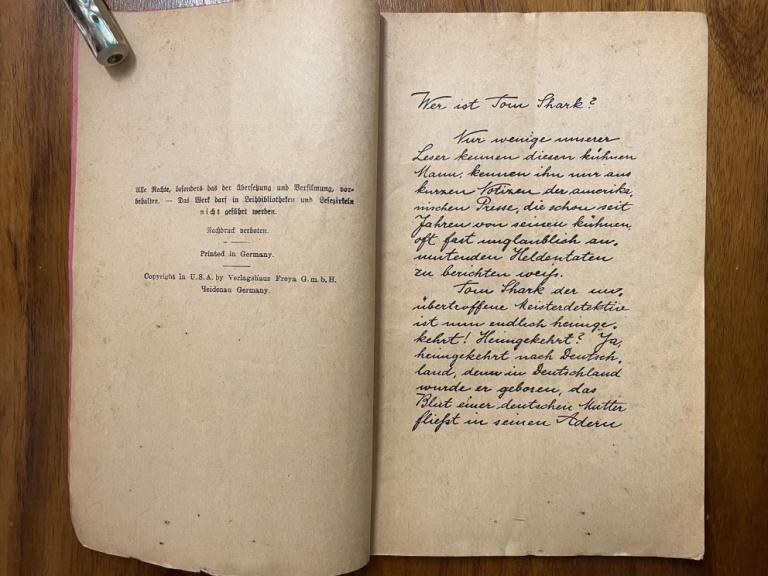 Alle Rechte, besonders das der Übersetzung und Verfilmung, vor-
behalten. — Das Werk darf in Leihbibliotheken und Lesezirkeln
nicht geführt werden.
Nachdruck verboten.
Printed in Germany.
Copyright in U.S.A. by Verlagshaus Freya G.m.b.H.
Heidenau Germany.
Wer ist Tom Shark?
Nur wenige unserer
Leser kennen diesen kühnen
Mann, kennen ihn nur aus
kurzen Notizen der amerika-
nischen Presse, die schon seit
Jahren von seinen kühnen,
oft fast unglaublich an-
mutenden Heldentaten
zu berichten weiß.
Tom Shark der un-
übertroffene Meisterdetektiv
ist nun endlich heimge-
kehrt! Heimgekehrt? Ja,
heimgekehrt nach Deutsch-
land, denn in Deutschland
wurde er geboren, das
Blut einer deutschen Mutter
fließt in seinen Adern